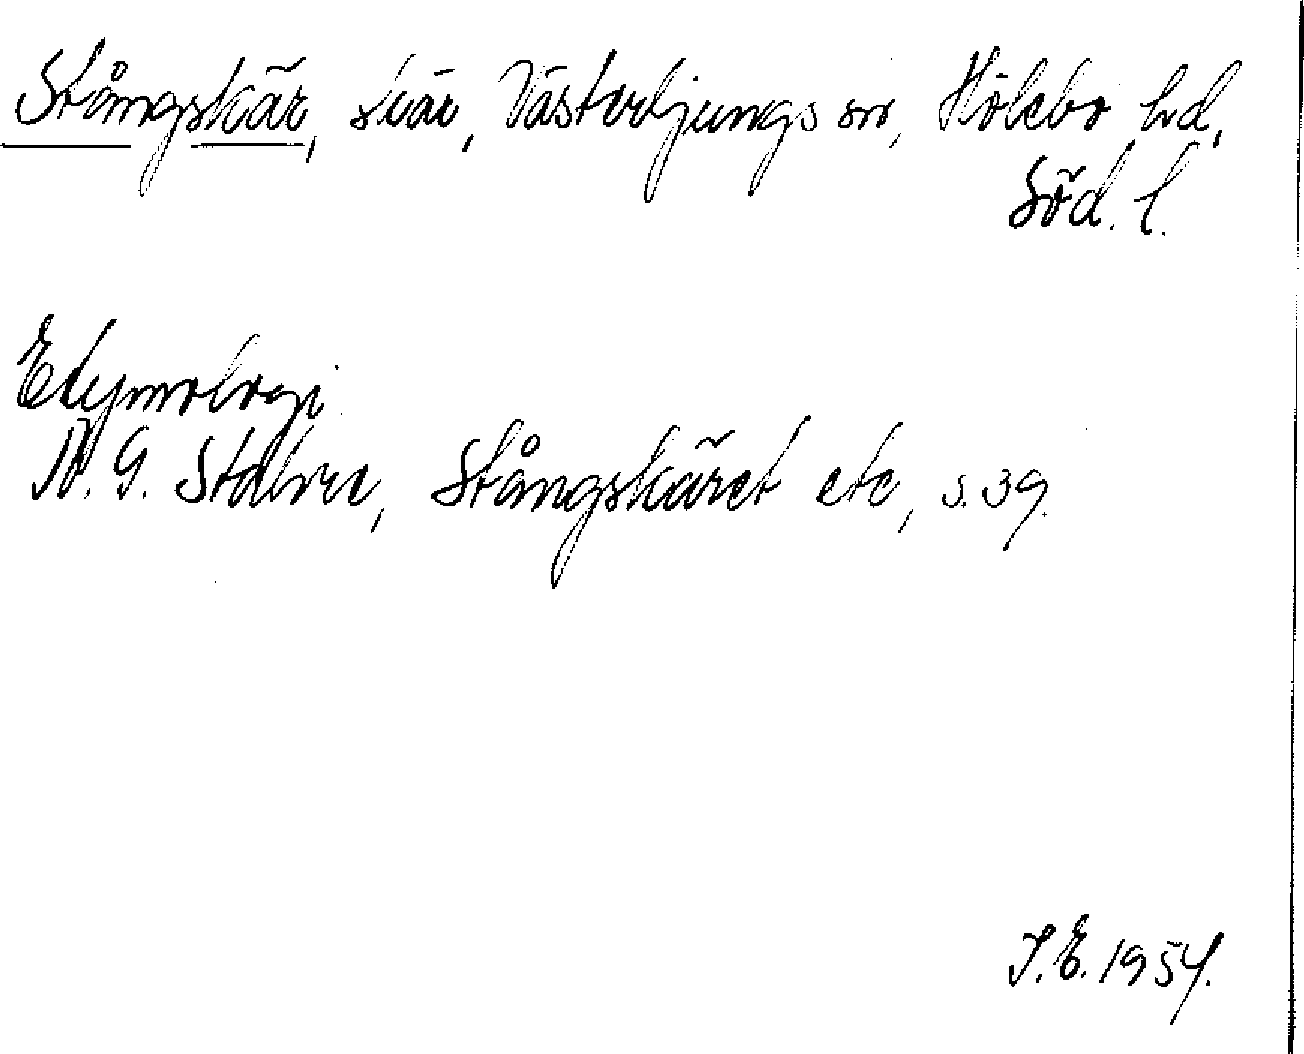 Stångskär, skär, Västerljungs sn, Hölebo hd,
Söd. l.
Etymologi
N. G. Stahre, Stångskäret etc, s. 39.
I. E. 1954.